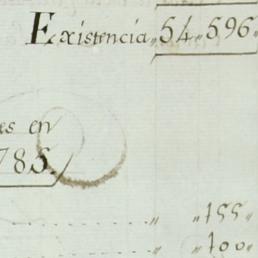 Existencia 54„596„
es en
785.
„ „155„
„ „100„